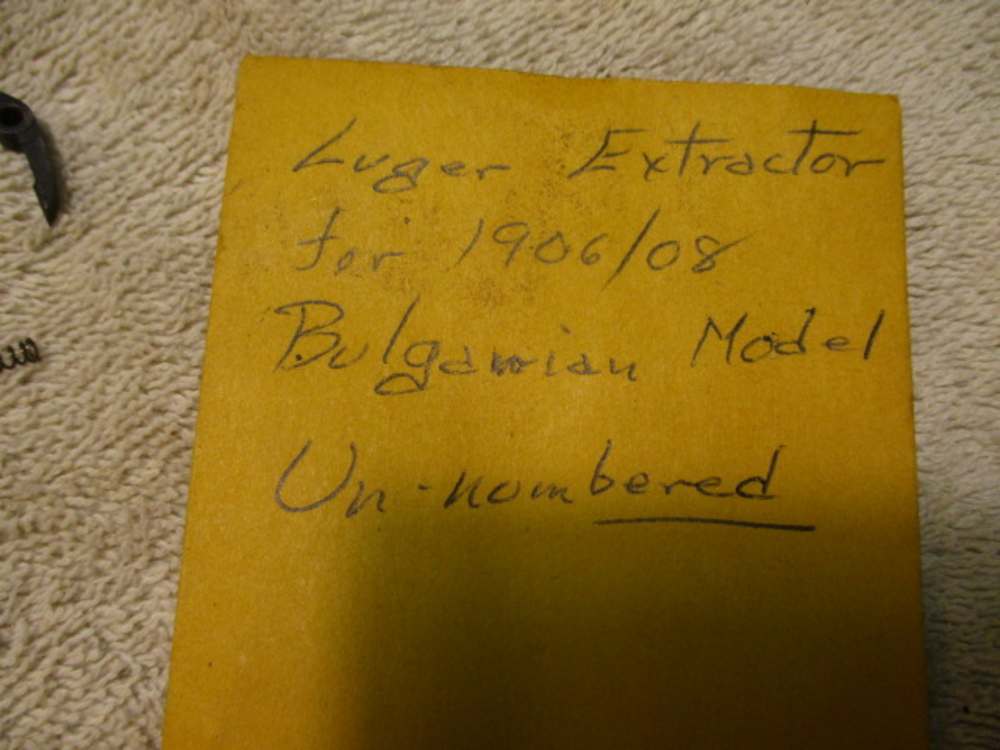 Luger Extractor
for 1906/08
Bulgarian Model
Un-numbered